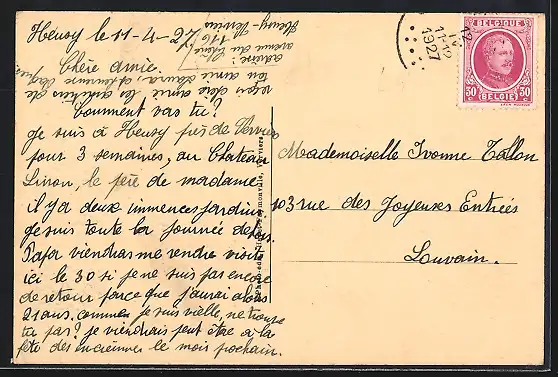 Heusy le 11-4-27
Chère amie.
Comment vas tu?
Je suis à Heusy près de Verviers
pour 3 semaines, au Chateau
Linon, le père de madame
il y a deux immences jardins
je suis toute la journée dehors.
Papa viendras me rendre visite
ici le 30 si je ne suis pas encore
de retour parce que j'aurai alors
21 ans. comme je suis vielle, ne trouve
tu pas? je viendrais peut être à la
fête des anciennes le mois prochain.
reçois chère amie les amitiés de
ton amie
adresse:
avenue du
116
Heusy-Verviers
12
IV
11-12
1927
BELGIQUE
30 30
BELGIE
Mademoiselle Ivonne Tallon
103 rue des Joyeuses Entrées
Louvain.